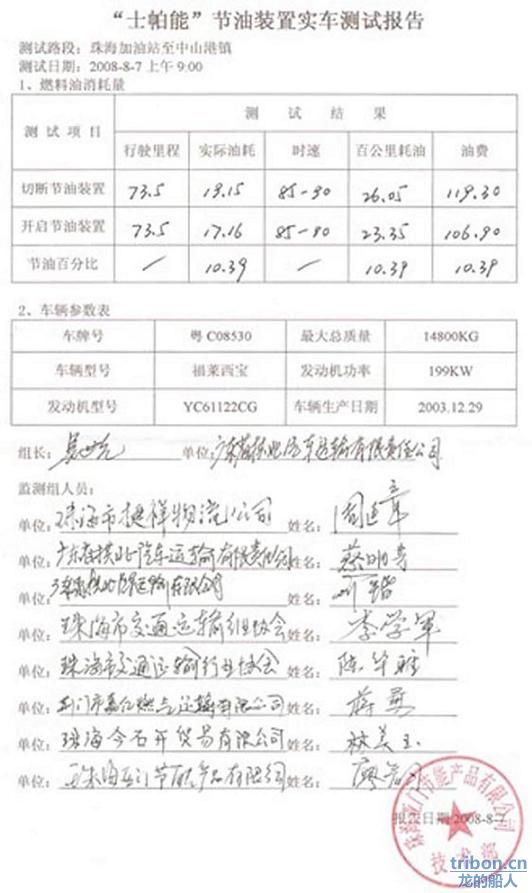 “士帕能”节油装置实车测试报告
测试路段：珠海加油站至中山港镇
测试日期：2008-8-7 上午 9:00
1、燃料油消耗量
测试项目 测试结果
行驶里程 实际油耗 时速 百公里耗油 油费
切断节油装置 73.5 19.15 85-90 26.05 119.30
开启节油装置 73.5 17.16 85-90 23.35 106.90
节油百分比 / 10.39 — 10.39 10.39
2、车辆参数表
车牌号 粤 C08530 最大总质量 14800KG
车辆型号 福莱西宝 发动机功率 199KW
发动机型号 YC61122CG 车辆生产日期 2003.12.29
组长： 单位：广东省拱北汽车运输有限责任公司
监测组人员：
单位：珠海市捷祥物流公司 姓名：周建章
单位：广东省拱北汽车运输有限责任公司 姓名：蔡
单位：拱北汽车运输有限公司 姓名：
单位：珠海市交通运输行业协会 姓名：李学军
单位：珠海市交通运输行业协会 姓名：陈华胜
单位：燃气运输有限公司 姓名：蒋英
单位：珠海今石开贸易有限公司 姓名：林美玉
单位：珠海亚门节能产品有限公司 姓名：廖
报告日期 2008-8-7
珠海亚门节能产品有限公司
技术部
tribon.cn
龙的船人